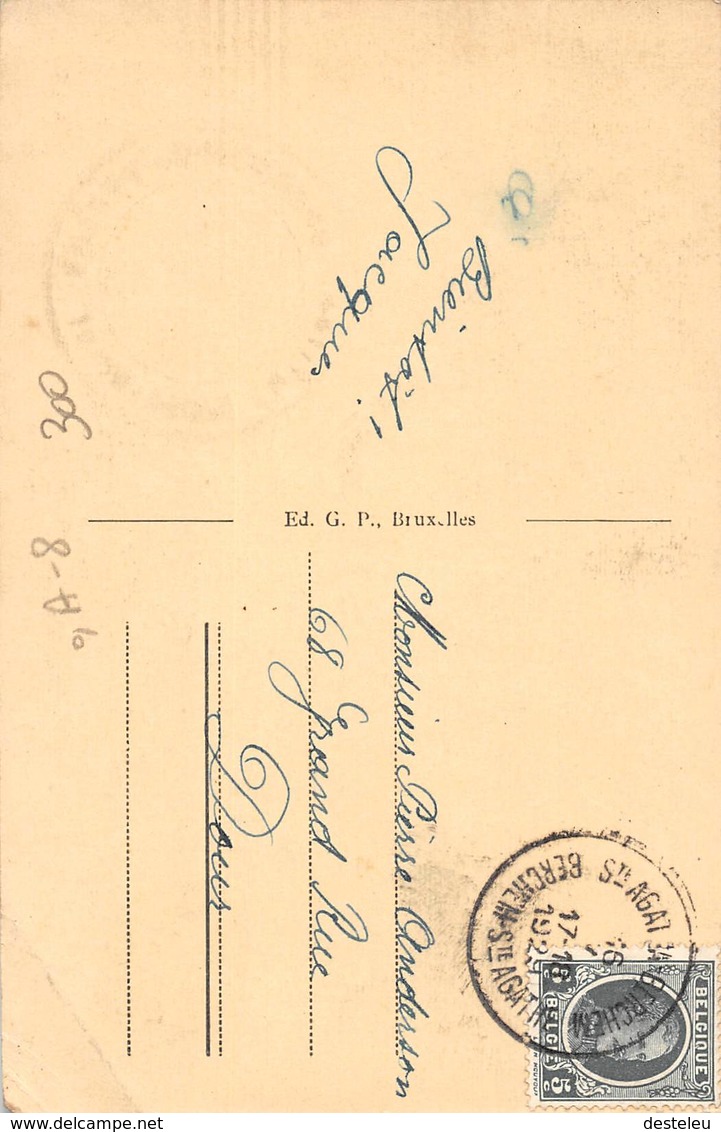 Bientôt !
Jacques
Ed. G. P., Bruxelles
Monsieur Pierre Anderson
68 Grand Rue
Dour
300
A-8
BERCHEM-STE AGATHE
STS AGATHA-BERCHEM
16
17-18
192
BELGIQUE
BELGIË
5 5
delcampe.net
desteleu